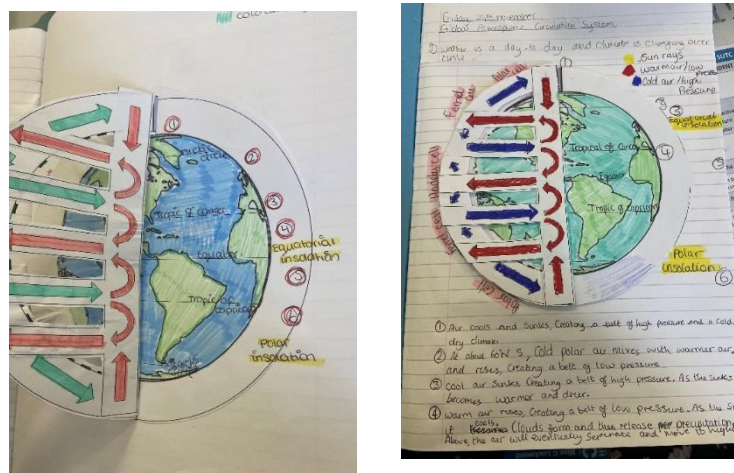 ①
Arctic
circle
②
Tropic of cancer
③
④
Equator
Equatorial
insolation
⑤
Tropic of
capricorn
⑥
Polar
insolation
Friday 21st november
Global Atmospheric Circulation System
weather is a day to day and climate is changing over
time.
Sun rays
warm air/low
Cold air/high
Pressure
①
②
③
Equatorial
insolation
④
Tropical of Cancer
Equator
Tropic of capricorn
⑤
Ferrel cell
Polar cell
Polar
insolation
⑥
① Air cools and sinks, creating a belt of high pressure and a cold,
dry climate.
② At about 60°N S, Cold polar air mixes with warmer air,
and rises, creating a belt of low pressure.
③ Cool air sinks creating a belt of high pressure. As the sinks
becomes warmer and drier.
④ warm air rises, creating a belt of low pressure. As the
it cools, Clouds form and then release precipitation
Above the air will eventually separate and move to